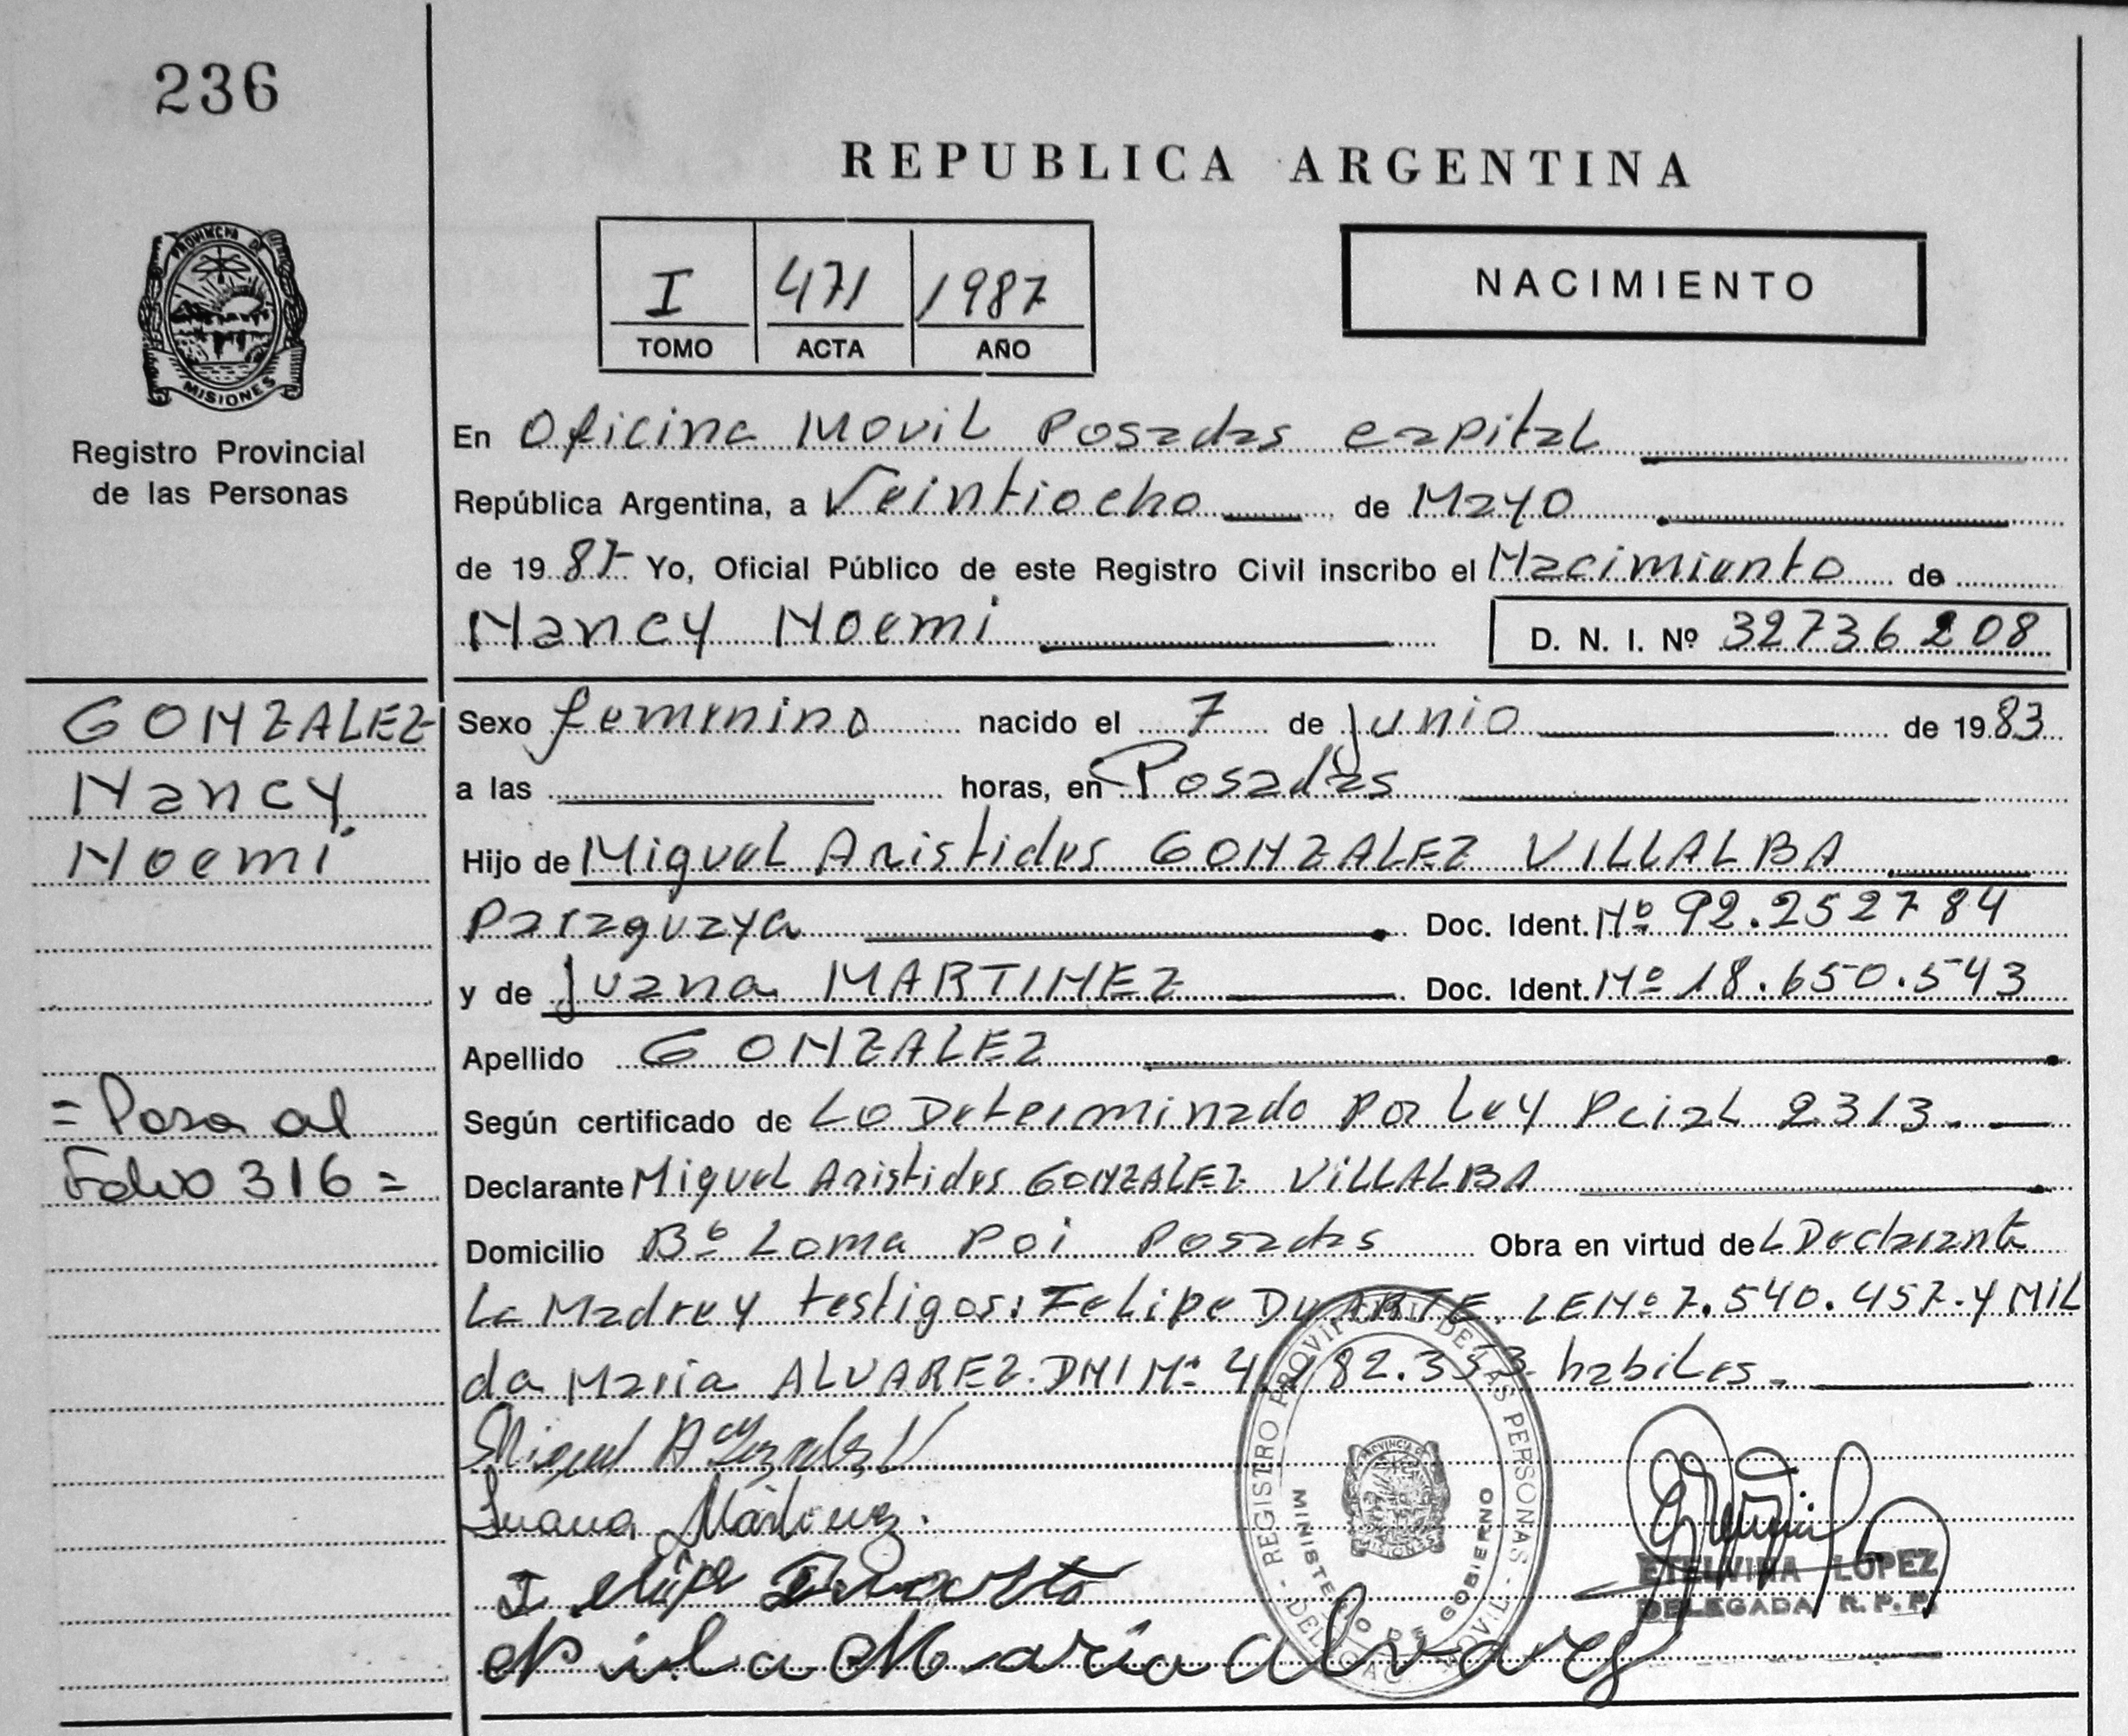 236
REPUBLICA ARGENTINA
PROVINCIA DE
MISIONES
I 471 1987
TOMO ACTA AÑO
NACIMIENTO
Registro Provincial
de las Personas
En Oficina Movil Posadas capital
República Argentina, a Veintiocho de Mayo
de 1987 Yo, Oficial Público de este Registro Civil inscribo el Nacimiento de
Nancy Noemi D. N. I. Nº 32736208
GONZALEZ
Nancy
Noemi
Sexo femenino nacido el 7 de junio de 1983
a las horas, en Posadas
Hijo de Miguel Aristides GONZALEZ VILLALBA
Paraguaya Doc. Ident. Nº 92.252784
y de Juana MARTINEZ Doc. Ident. Nº 18.650.543
Apellido GONZALEZ
= Pasa al
Folio 316 =
Según certificado de Lo Determinado Por Ley Pcial 2313.
Declarante Miguel Aristides GONZALEZ VILLALBA
Domicilio Bº Loma Poi Posadas Obra en virtud del Declarante
La Madre y testigos: Felipe DUARTE. LE Nº 7.540.457. y MIL
da Maria ALVAREZ. DNI Nº 4. 82.353. habiles.
Miguel A Gonzalez V
Juana Martinez.
Felipe Duarte
Maria Alvares
REGISTRO PROVINCIAL DE LAS PERSONAS
MINISTERIO DE GOBIERNO
PROVINCIA DE
MISIONES
MOVIL
ETELVINA LOPEZ
DELEGADA R. P. P.